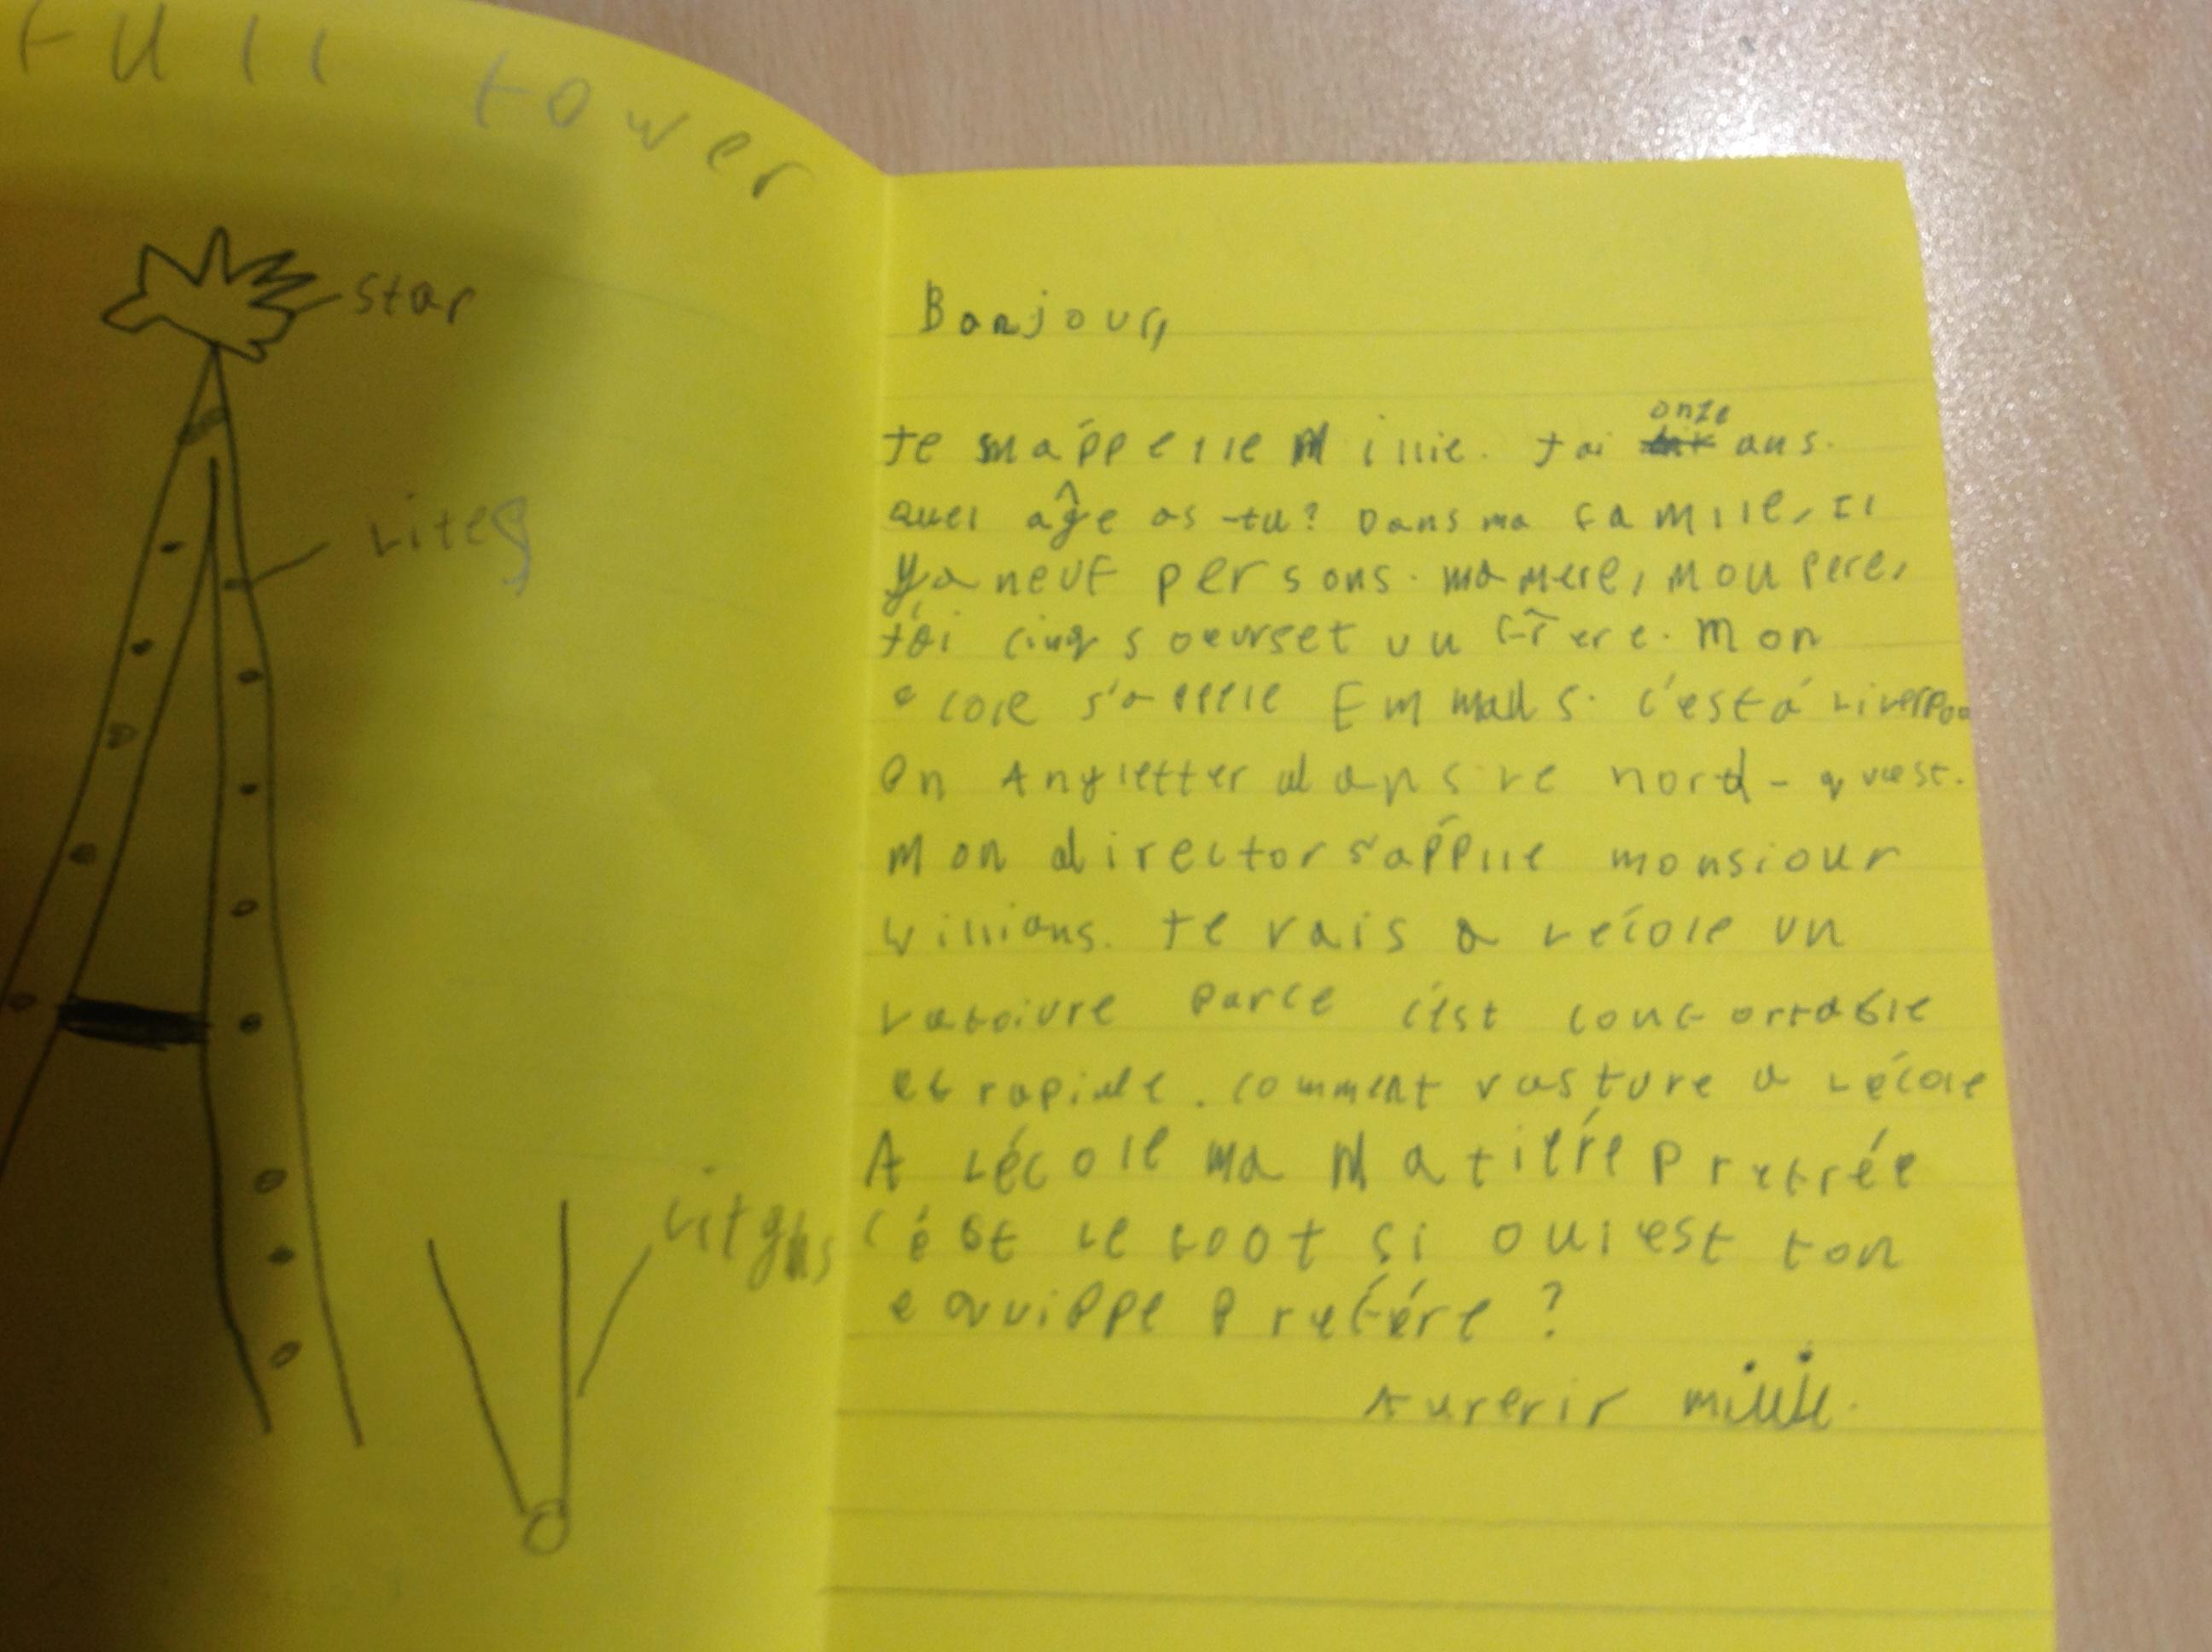 Full tower
star
Lites
Litghs
Bonjour,
Je m'appelle Millie. J'ai onze ans.
quel âge as-tu? Dans ma famille, Il
ya neuf persons. ma mere, mou pere,
J'ai cinq soeurset uu frère. Mon
ecole s'appelle Emmaus. C'est á Liverpoo
en Angletter dans le nord-quest.
Mon director s'applle monsiour
Willians. Je vais a lécole un
parce c'ést confortable
et rapide. comment vasture a Lécole
A Lécole ma Matiére prefrée
c'ést Le foot si oui est ton
equippe prefére?
Aurerir millie.